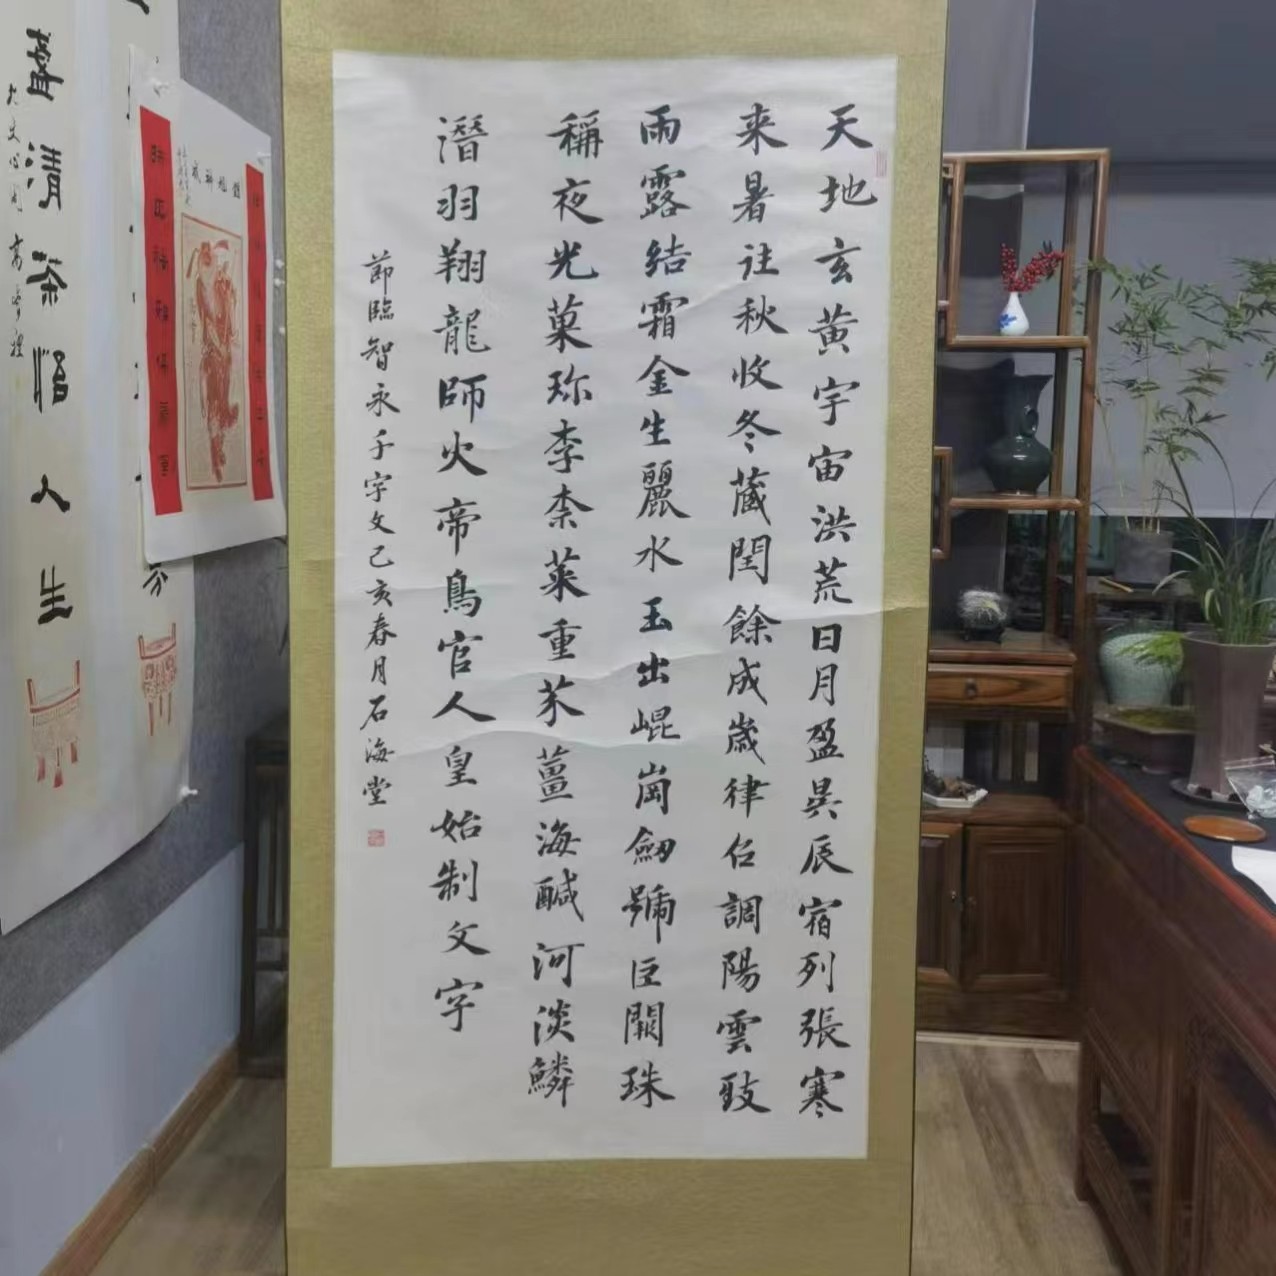 天地玄黄宇宙洪荒日月盈昃辰宿列張寒
来暑往秋收冬蔵閏餘成歲律召調陽雲致
雨露結霜金生麗水玉出崐崗劒號巨闕珠
稱夜光菓珎李柰菜重芥薑海醎河淡鱗
潛羽翔龍師火帝鳥官人皇始制文字
節臨智永千字文己亥春月石海堂
盞清茶悟人生